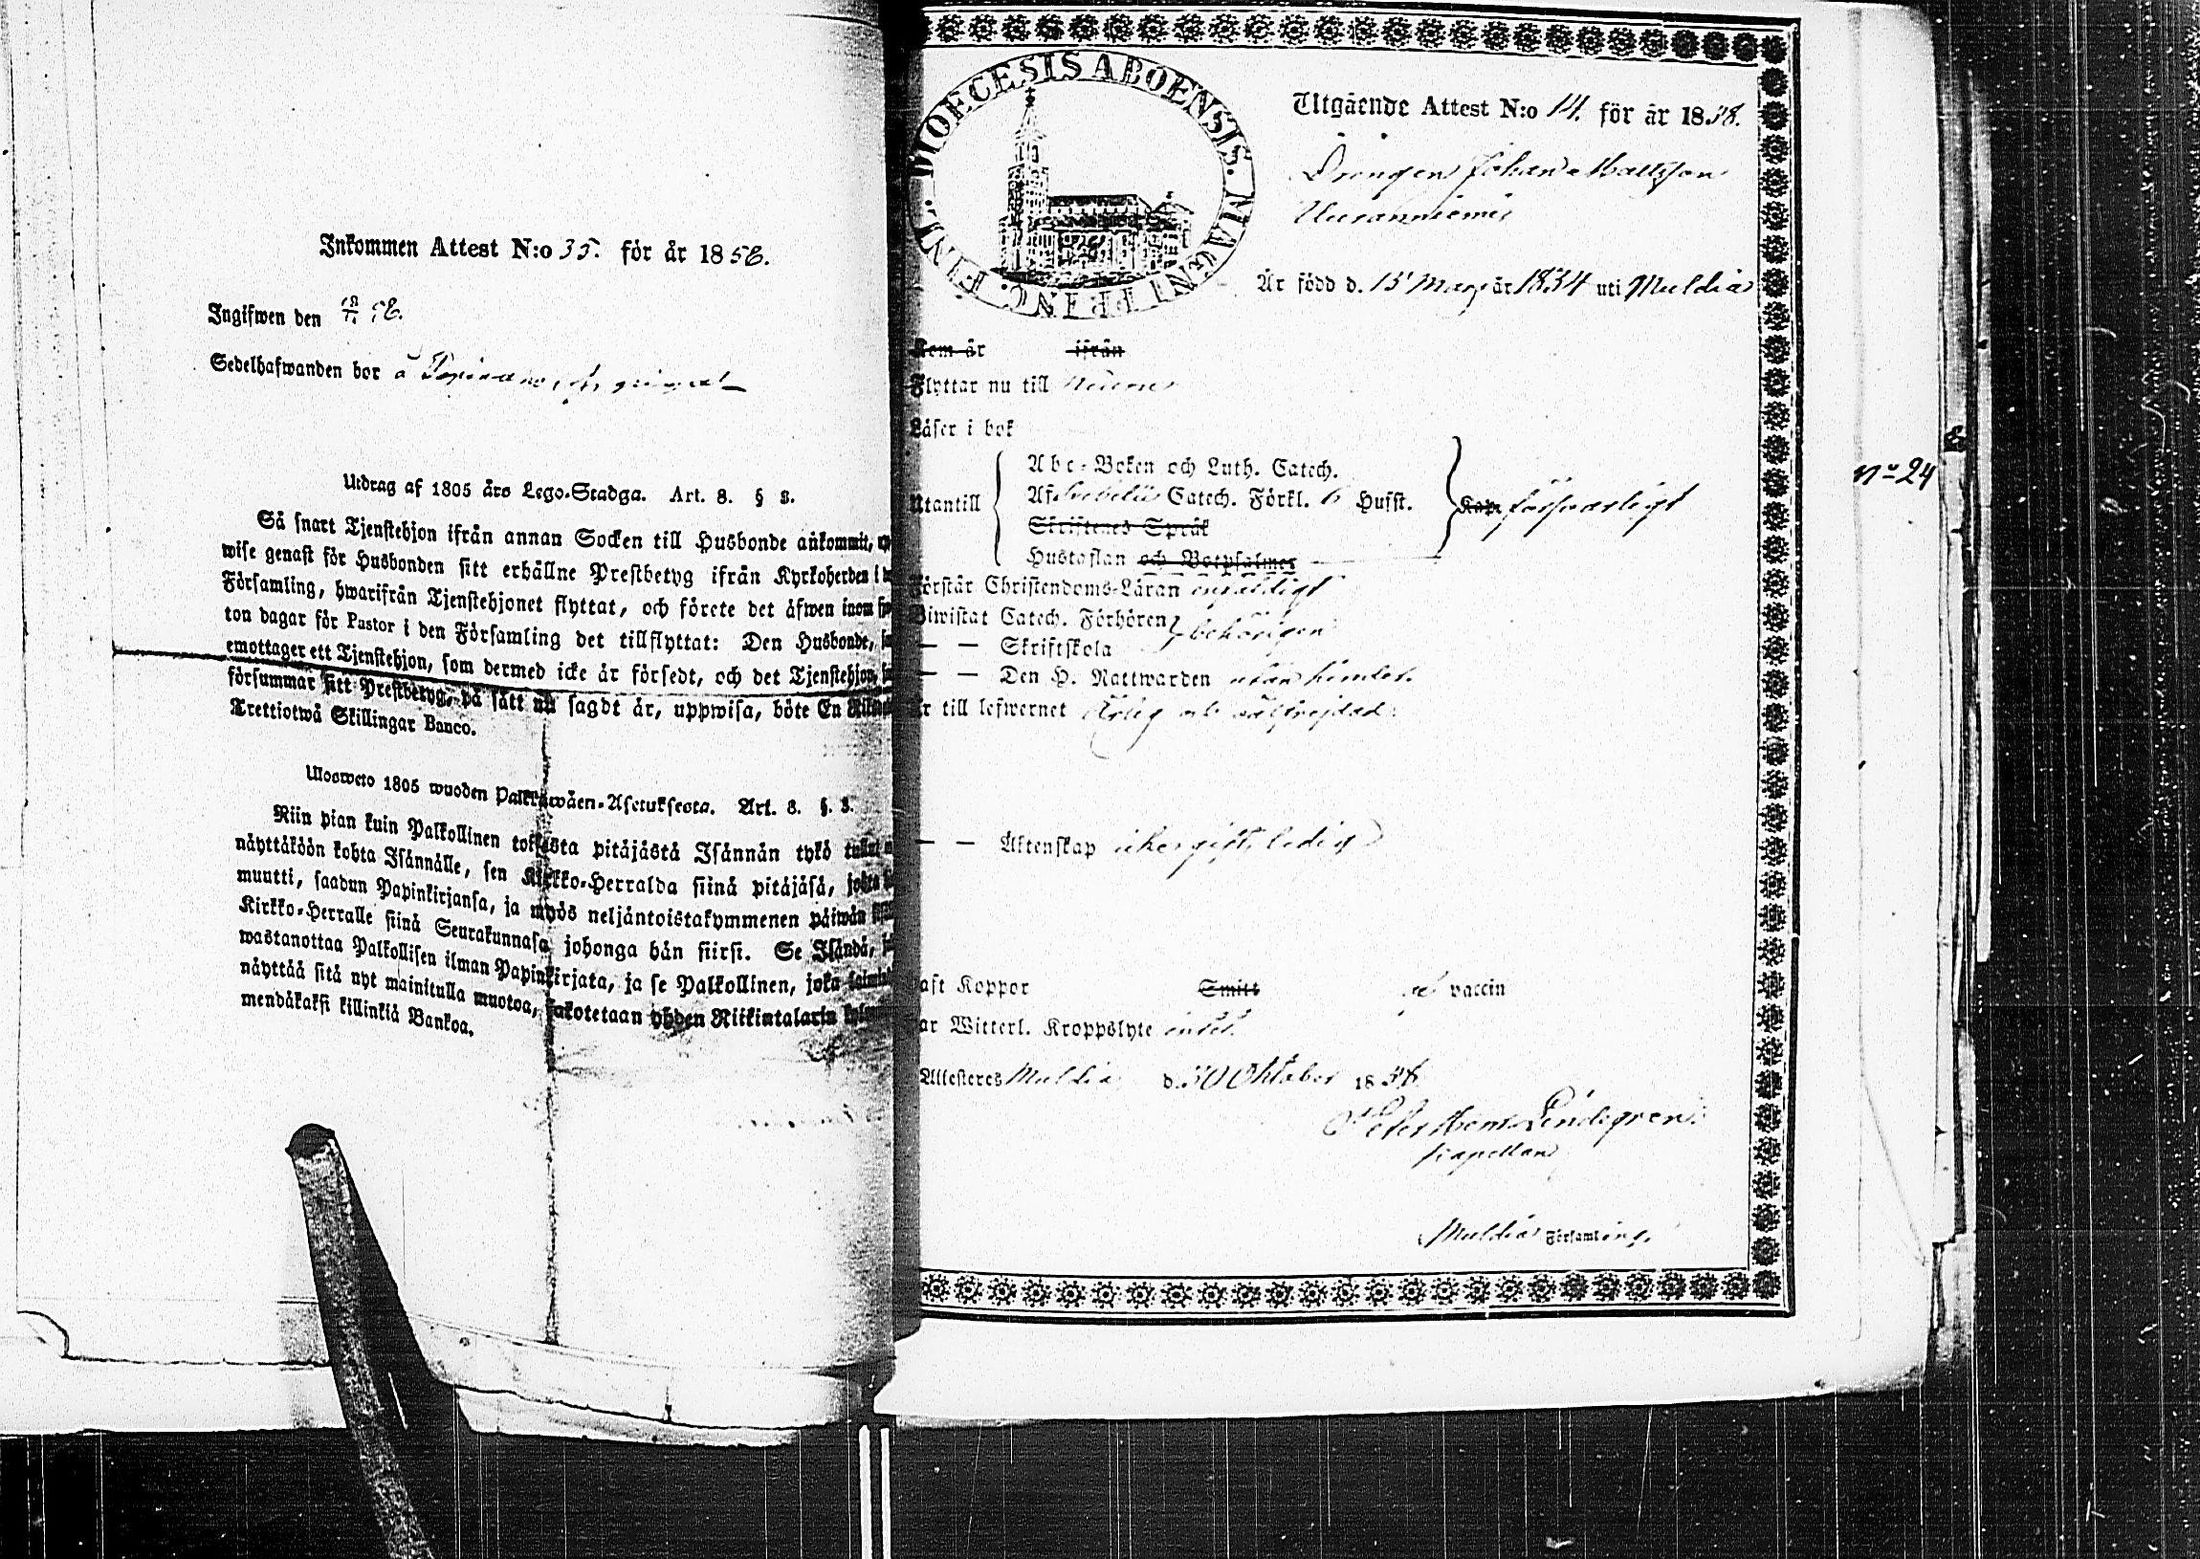 Inkommen Attest N:o 35. för år 1856.
Ingifwen den
Sedelhafwanden bor å
Utdrag af 1805 års Lego-Stadga. Art. 8. § 3.
Så snart Tjenstehjon ifrån annan Socken till Husbonde ankommit,
wise genast för Husbonden sitt erhållne Prestbetyg ifrån Kyrkoherden i
Församling, hwarifrån Tjenstehjonet flyttat, och förete det äfwen inom
ton dagar för Pastor i den Församling det tillflyttat: Den Husbonde,
emottager ett Tjenstehjon, som dermed icke är försedt, och det Tjenstehjon,
försummar sitt Prestbetyg, på sätt nu sagdt är, uppwisa, böte En
Trettiotwå Skillingar Banco.
Ulosweto 1805 wuoden Palkkawäen-Asetuksesta. Art. 8. §. 3.
Niin pian kuin Palkollinen toisesta pitäjästä Isännän tykö
näyttäköön kohta Isännälle, sen Kirkko-Herralda siinä pitäjäsä,
muutti, saadun Papinkirjansa, ja myös neljäntoistakymmenen päiwän
Kirkko-Herralle siinä Seurakunnasa johonga hän siirsi. Se Isändä,
wastanottaa Palkollisen ilman Papinkirjata, ja se Palkollinen, joka
näyttää sitä nyt mainitulla muotoa, sakotetaan yhden Riikintalarin
mendäkaksi killinkiä Bankoa.
DIOECESIS ABOENSIS. MAGNI PRINC. FINL.
Utgående Attest N:o 14. för år 1858.
Drängen Johan Mattsson
Är född d. 15 Mars år 1834 uti Muldia
Kom år ifrån
Flyttar nu till
Läser i bok
Abc-Boken och Luth. Catech.
Utantill Af Svebelii Catech. Förkl. 6 Husst. Kap. försvarligt
Skriftenes Språk
Hustaflan och Botpsalmer
Förstår Christendoms-Läran enfaldigt
Biwistat Catech. Förhören behörigen
— — Skriftskola
— — Den H. Nattwarden utan hinder.
Är till lefwernet ärlig och välfrejdad.
— — Äktenskap icke gift, ledig
Haft Koppor Smitt vaccin
Har Witterl. Kroppslyte intet.
Attesteres Muldia d. 30 Oktober 1856
Peter Herm. Lindegren.
Kapellan
Muldia Församling.
N:o 24